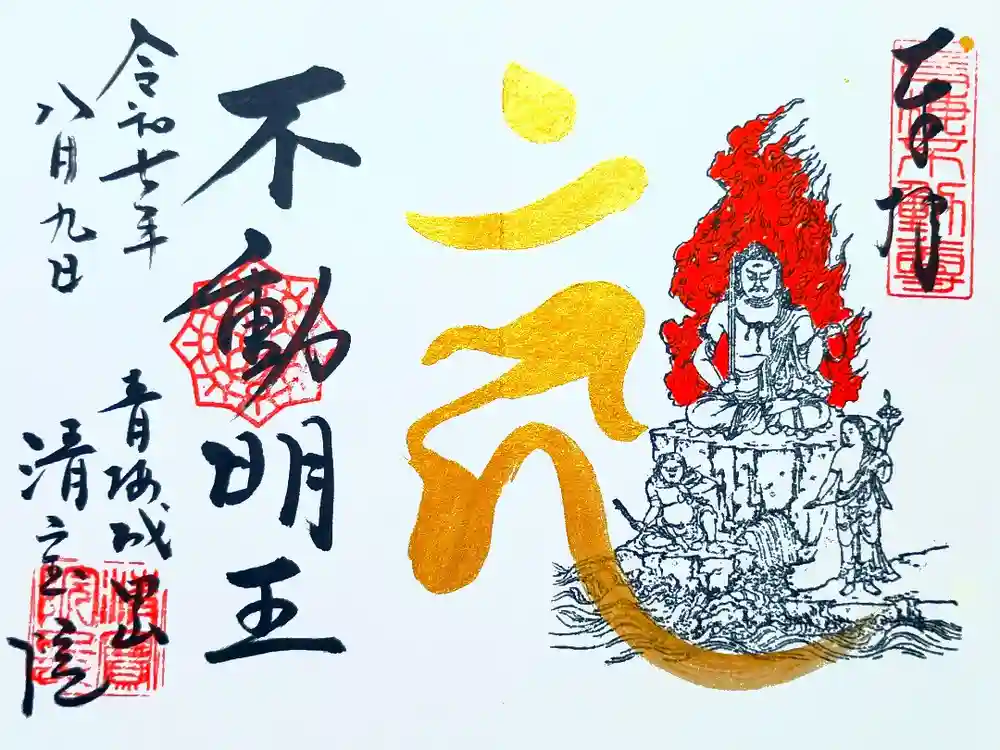 奉拝
不動明王
令和七年
八月九日
青梅
清宝院